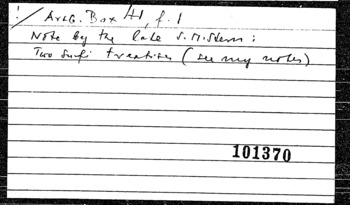 ! / Arab. Box 41, f. 1
Note by the late S. M. Stern :
Two Sufi treatises (see my notes)
101370